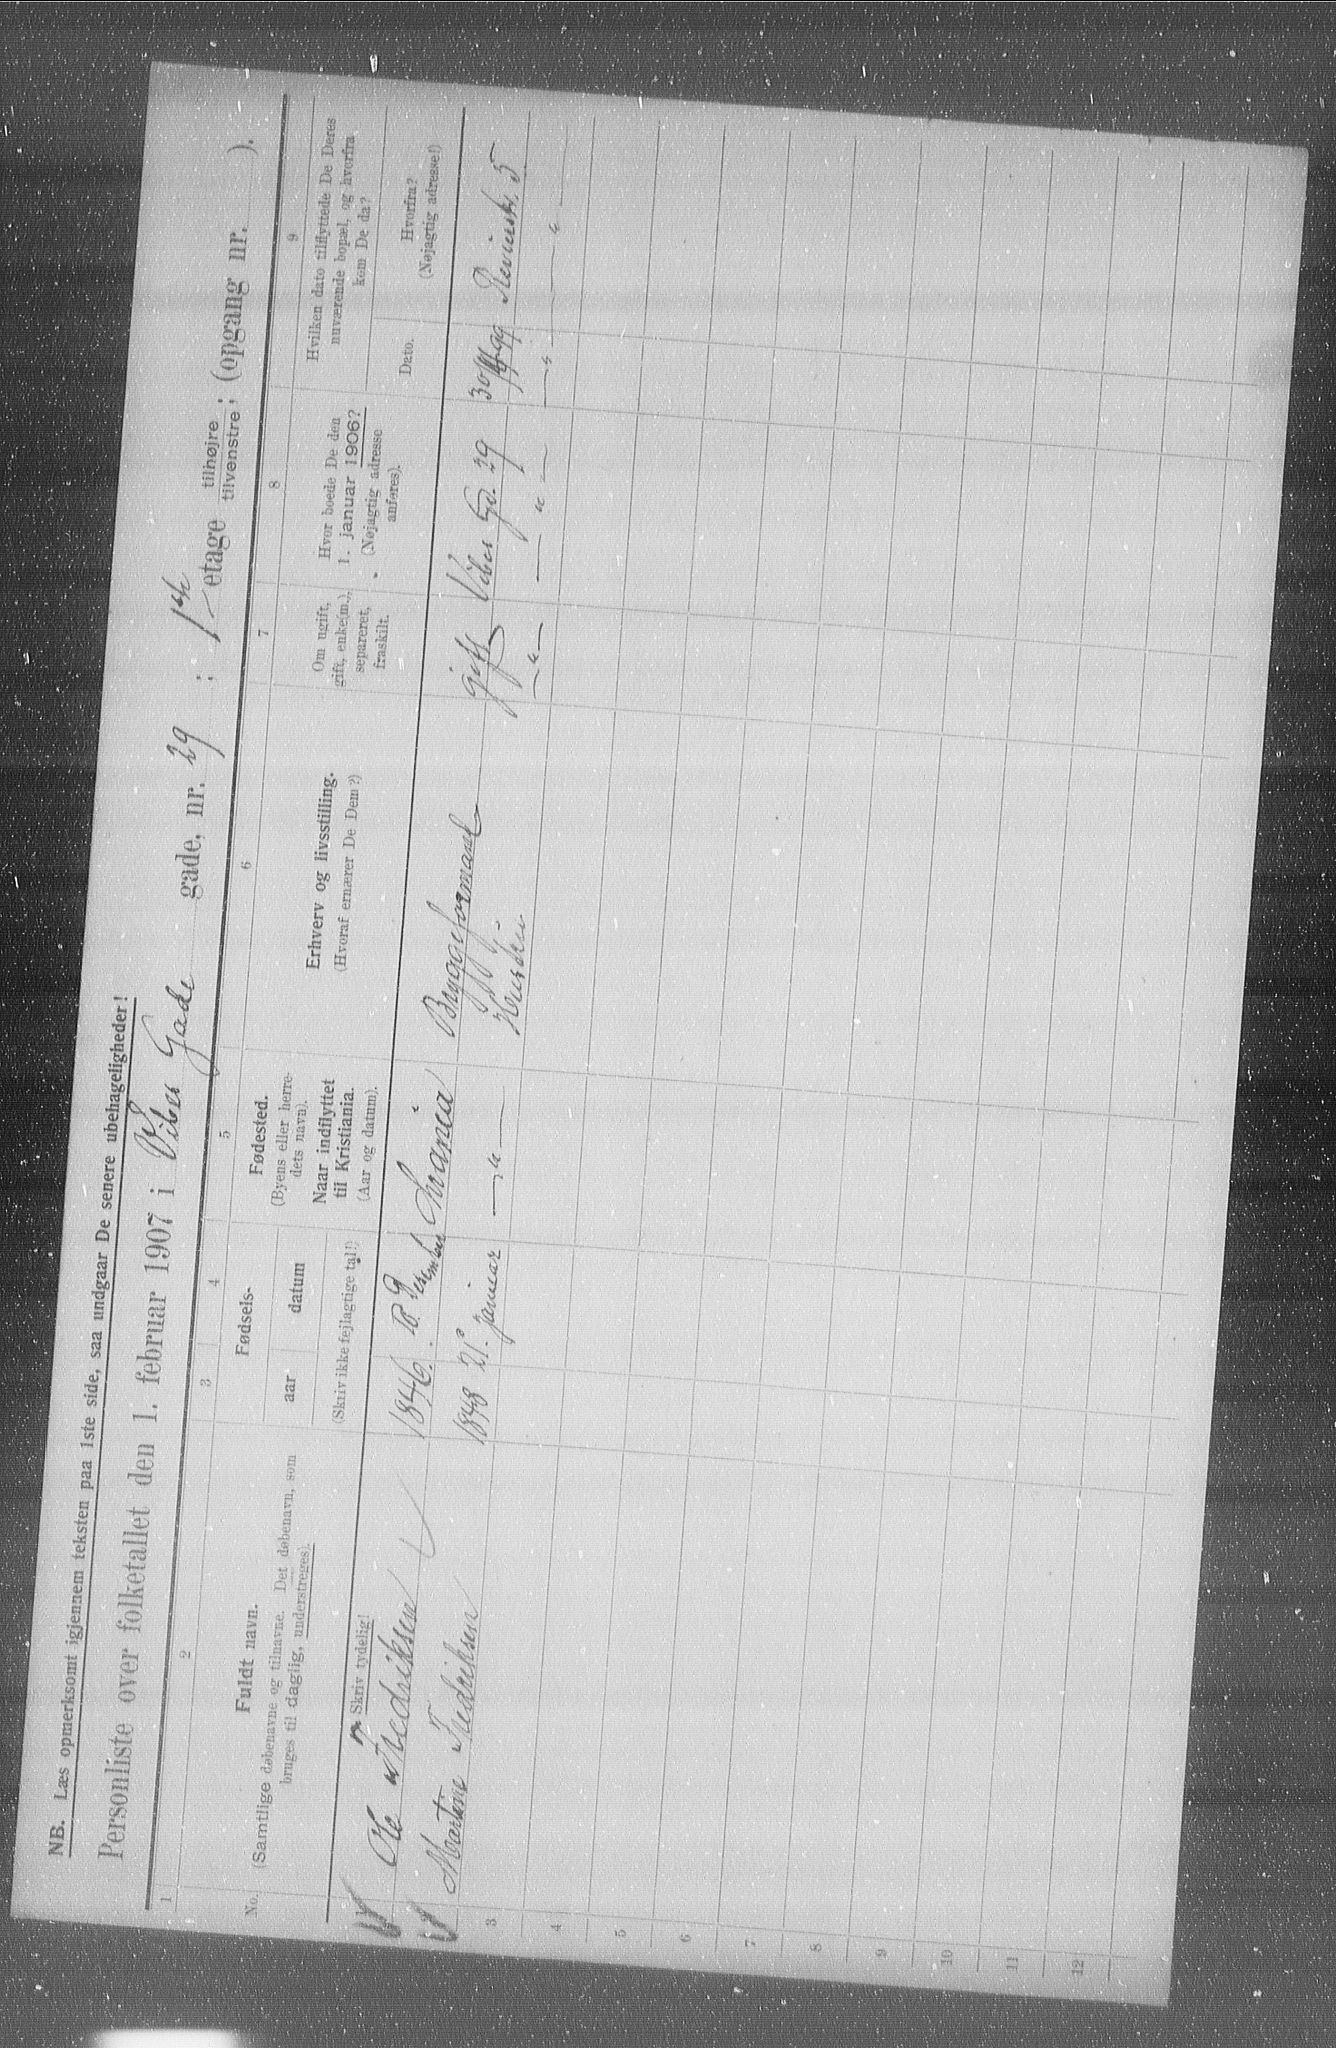 NB. Læs opmerksomt igjennem teksten paa 1ste side, saa undgaar De senere ubehageligheder!
Personliste over folketallet den 1. februar 1907 i Vibes Gade gade, nr. 29 ; 1ste etage tilhøjre tilvenstre ; (opgang nr. ).
1 2 3 4 5 6 7 8 9
No.
Fuldt navn.
(Samtlige døbenavne og tilnavne. Det døbenavn, som
bruges til daglig, understreges).
Skriv tydelig!
Fødsels-
aar datum
(Skriv ikke fejlagtige tal!)
Fødested.
(Byens eller herre-
dets navn).
Naar indflyttet
til Kristiania.
(Aar og datum).
Erhverv og livsstilling.
(Hvoraf ernærer De Dem?)
Om ugift,
gift, enke(m.),
separeret,
fraskilt.
Hvor boede De den
1. januar 1906?
(Nøjagtig adresse
anføres).
Hvilken dato tilflyttede De Deres
nuværende bopæl, og hvorfra
kom De da?
Dato.
Hvorfra?
(Nøjagtig adresse!)
Ole Fredriksen 1846. 9 Desember Bryggeformand gift Vibes Gd. 29
Martine Fredriksen 1848 21. januar — " — — " — — " — — " — — " —
3
4
5
6
7
8
9
10
11
12